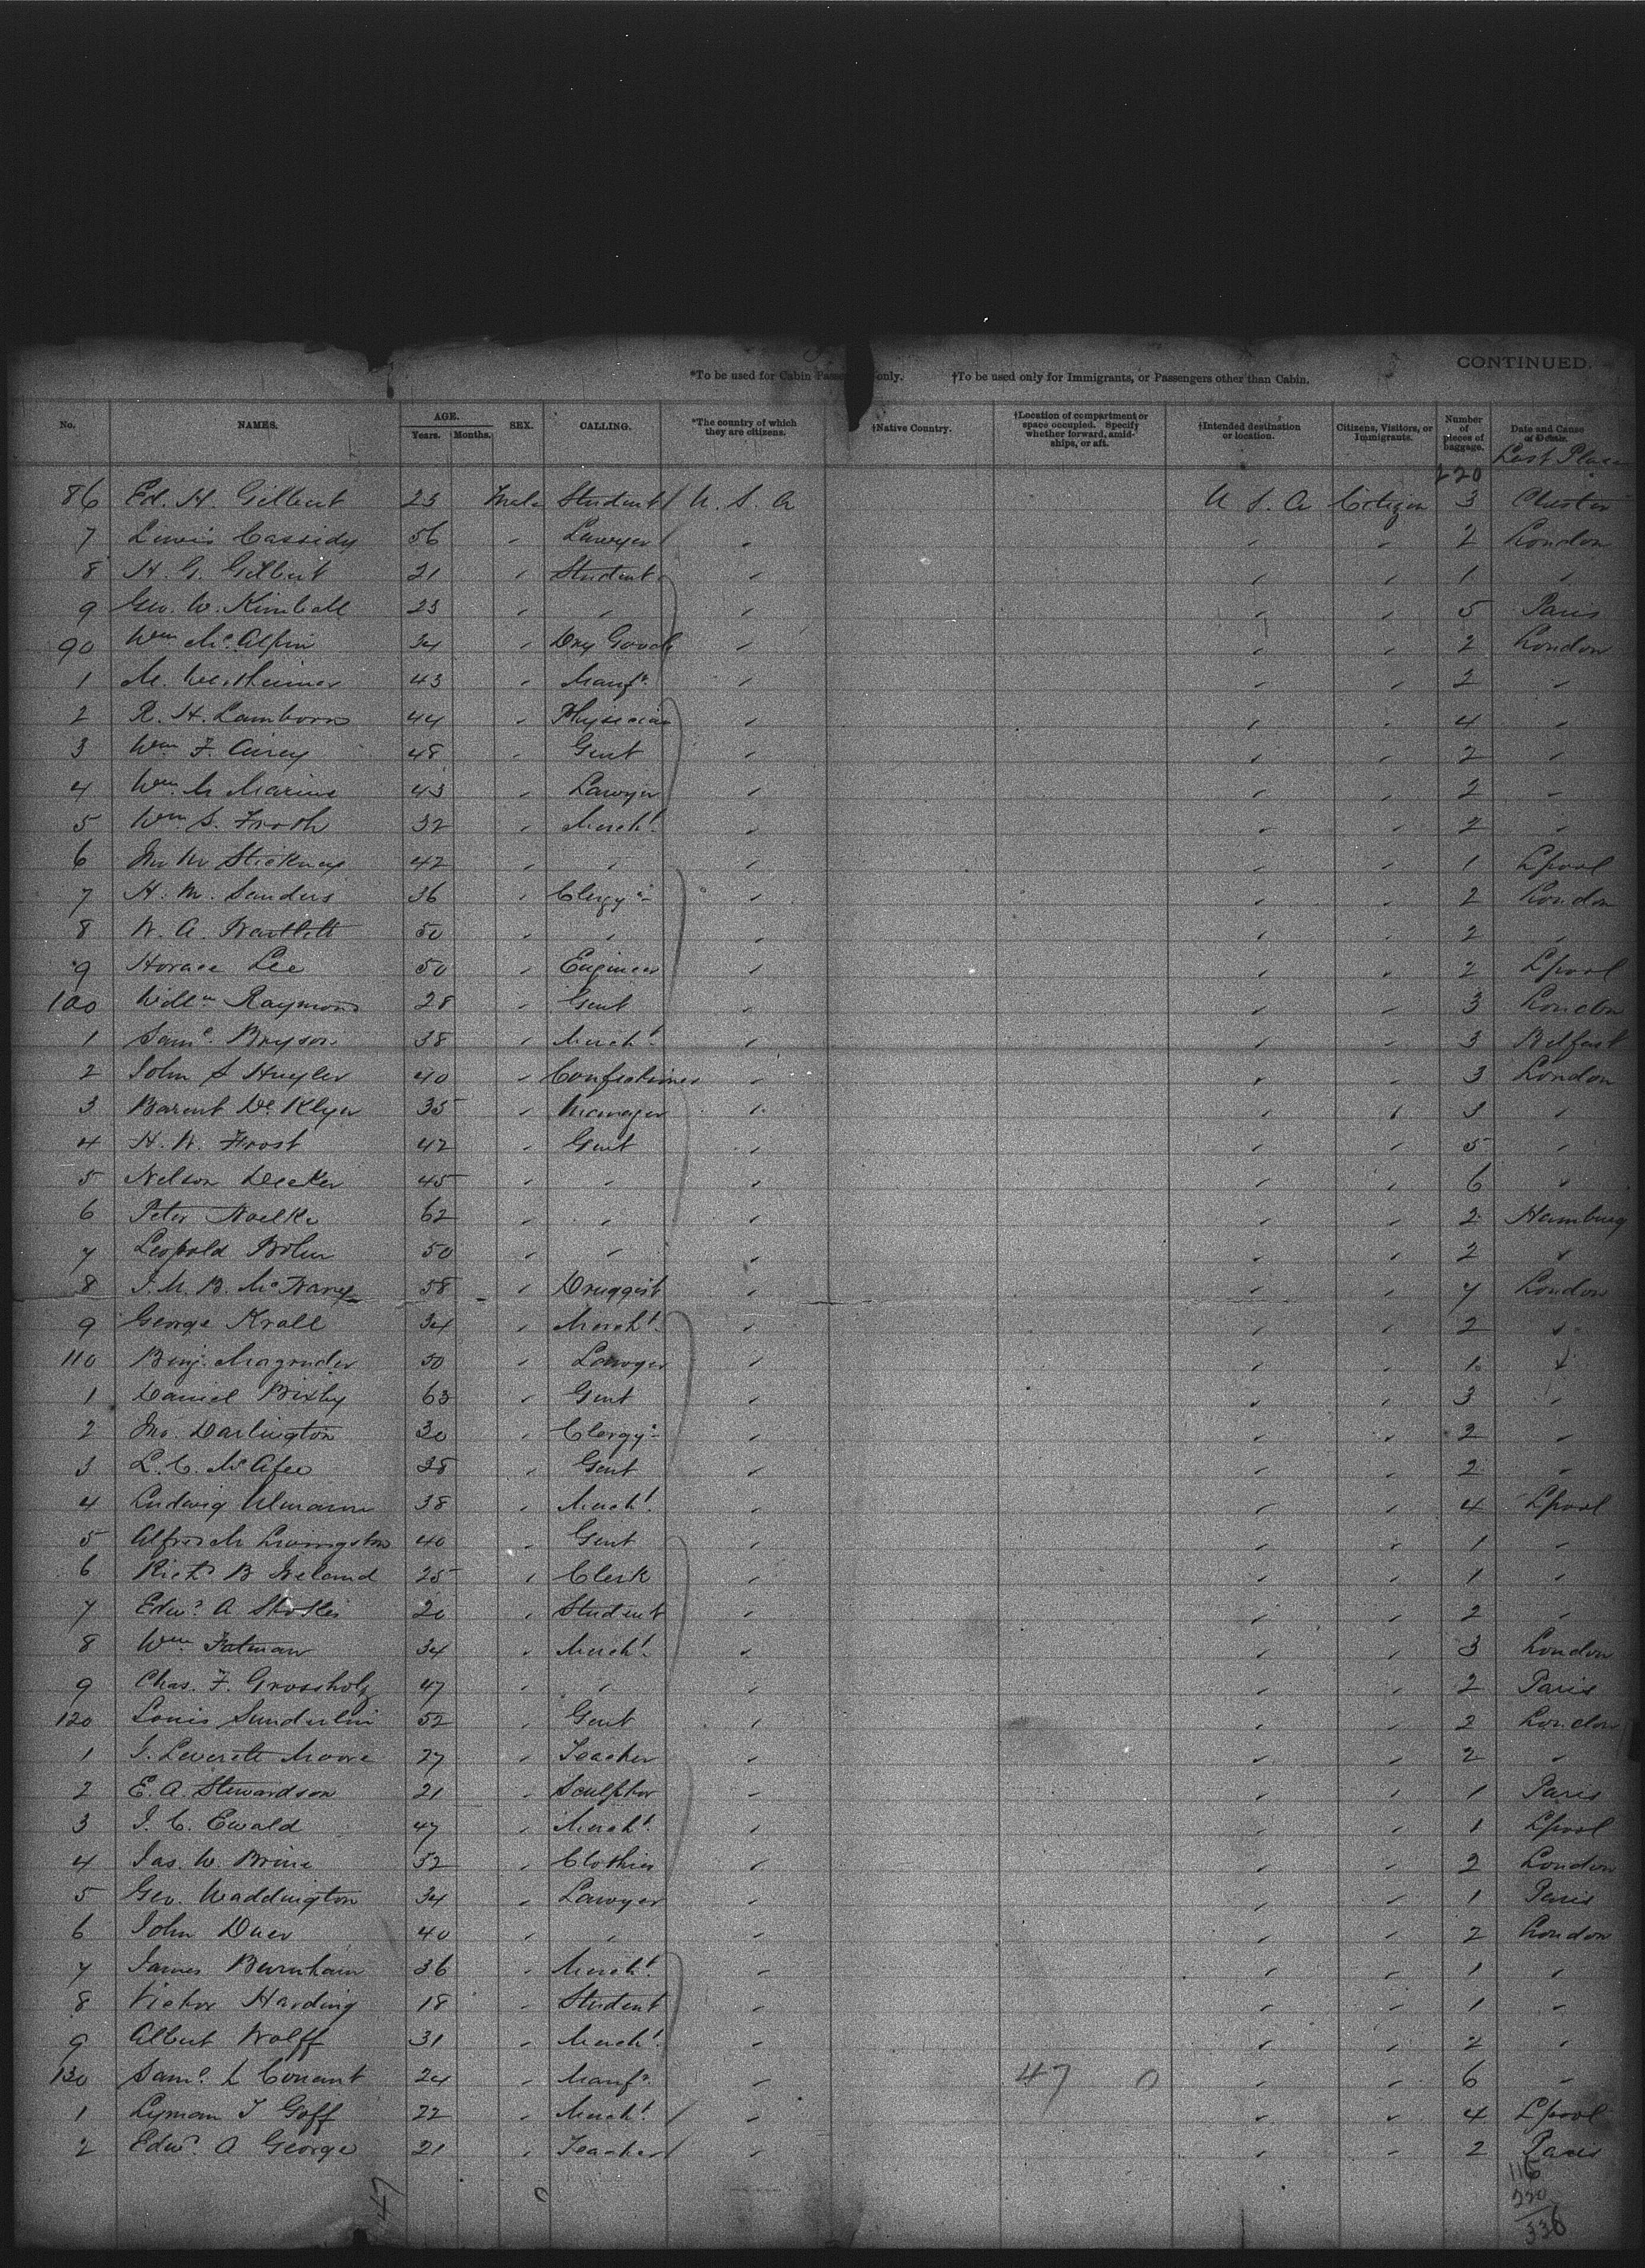 CONTINUED.
*To be used for Cabin Passe only. †To be used only for Immigrants, or Passengers other than Cabin.
No. NAMES. AGE. Years. Months. SEX. CALLING. *The country of which they are citizens. †Native Country. †Location of compartment or space occupied. Specify whether forward, amidships, or aft. †Intended destination or location. Citizens, Visitors, or Immigrants. Number of pieces of baggage. Date and Cause of Death.
Last Place
220
86 Ed. H. Gilbert 23 Male Student U. S. A U S. A Citizen 3 Chester
7 Lewis Cassidy 56 " Lawyer " " " 2 London
8 H. G. Gilbert 21 " Student " " " 1 "
9 Geo. W. Kimball 23 " " " " " 5 Paris
90 Wm Mc Alpin 34 " Dry Goods " " " 2 London
1 M. Wertheimer 43 " Manfr " " " 2 "
2 R. H. Lamborn 44 " Physician " " " 4 "
3 Wm F. Carey 48 " Gent " " " 2 "
4 Wm M Marine 43 " Lawyer " " " 2 "
5 Wm S. Froth 32 " Mercht " " " 2 "
6 Jno W Stickney 42 " " " " " 1 Lpool
7 H. M. Sanders 36 " Clergyn " " " 2 London
8 W. A. Bartlett 50 " " " " " 2 "
9 Horace Lee 50 " Engineer " " " 2 Lpool
100 Willm Raymond 28 " Gent " " " 3 London
1 Saml Bryson 38 " Mercht " " " 3 Belfast
2 John S Huyler 40 " Confectioner " " " 3 London
3 Barent De Klyn 35 " Manager " " " 3 "
4 H. W. Frost 42 " Gent " " " 5 "
5 Nelson Decker 45 " " " " " 6 "
6 Peter Noelke 62 " " " " " 2 Hamburg
7 Leopold Bohm 50 " " " " " 2 "
8 58 " Druggist " " " 7 London
9 George Krall 34 " Mercht " " " 2 "
110 Benj. Magruder 50 " Lawyer " " " 1 "
1 Daniel Bixby 63 " Gent " " " 3 "
2 Jno. Darlington 30 " Clergyn " " " 2 "
3 L. C. McAfee 38 " Gent " " " 2 "
4 Ludwig Ulmann 38 " Mercht " " " 4 Lpool
5 Alfred M Livingston 40 " Gent " " " 1 "
6 Richd B Ireland 25 " Clerk " " " 1 "
7 Edwd A 20 " Student " " " 2 "
8 Wm Fatman 34 " Mercht " " " 3 London
9 Chas. F. Grossholz 47 " " " " " 2 Paris
120 Louis Sunderlin 52 " Gent " " " 2 London
1 J. Leverett Moore 27 " Teacher " " " 2 "
2 E. A. Stewardson 21 " Sculptor " " " 1 Paris
3 J. C. Ewald 47 " Mercht " " " 1 Lpool
4 Jas. W. Brine 52 " Clothier " " " 2 London
5 Geo. Waddington 34 " Lawyer " " " 1 Paris
6 John Duer 40 " " " " " 2 London
7 James Burnham 36 " Mercht " " " 1 "
8 Victor Harding 18 " Student " " " 1 "
9 Albert Wolff 31 " Mercht " " " 2 "
130 Saml L Conant 24 " Manfr " 47 0 " " 6 "
1 Lyman T Goff 22 " Mercht " " " 4 Lpool
2 Edwd A George 21 " Teacher " " " 2 Paris
47 0
116
220
336